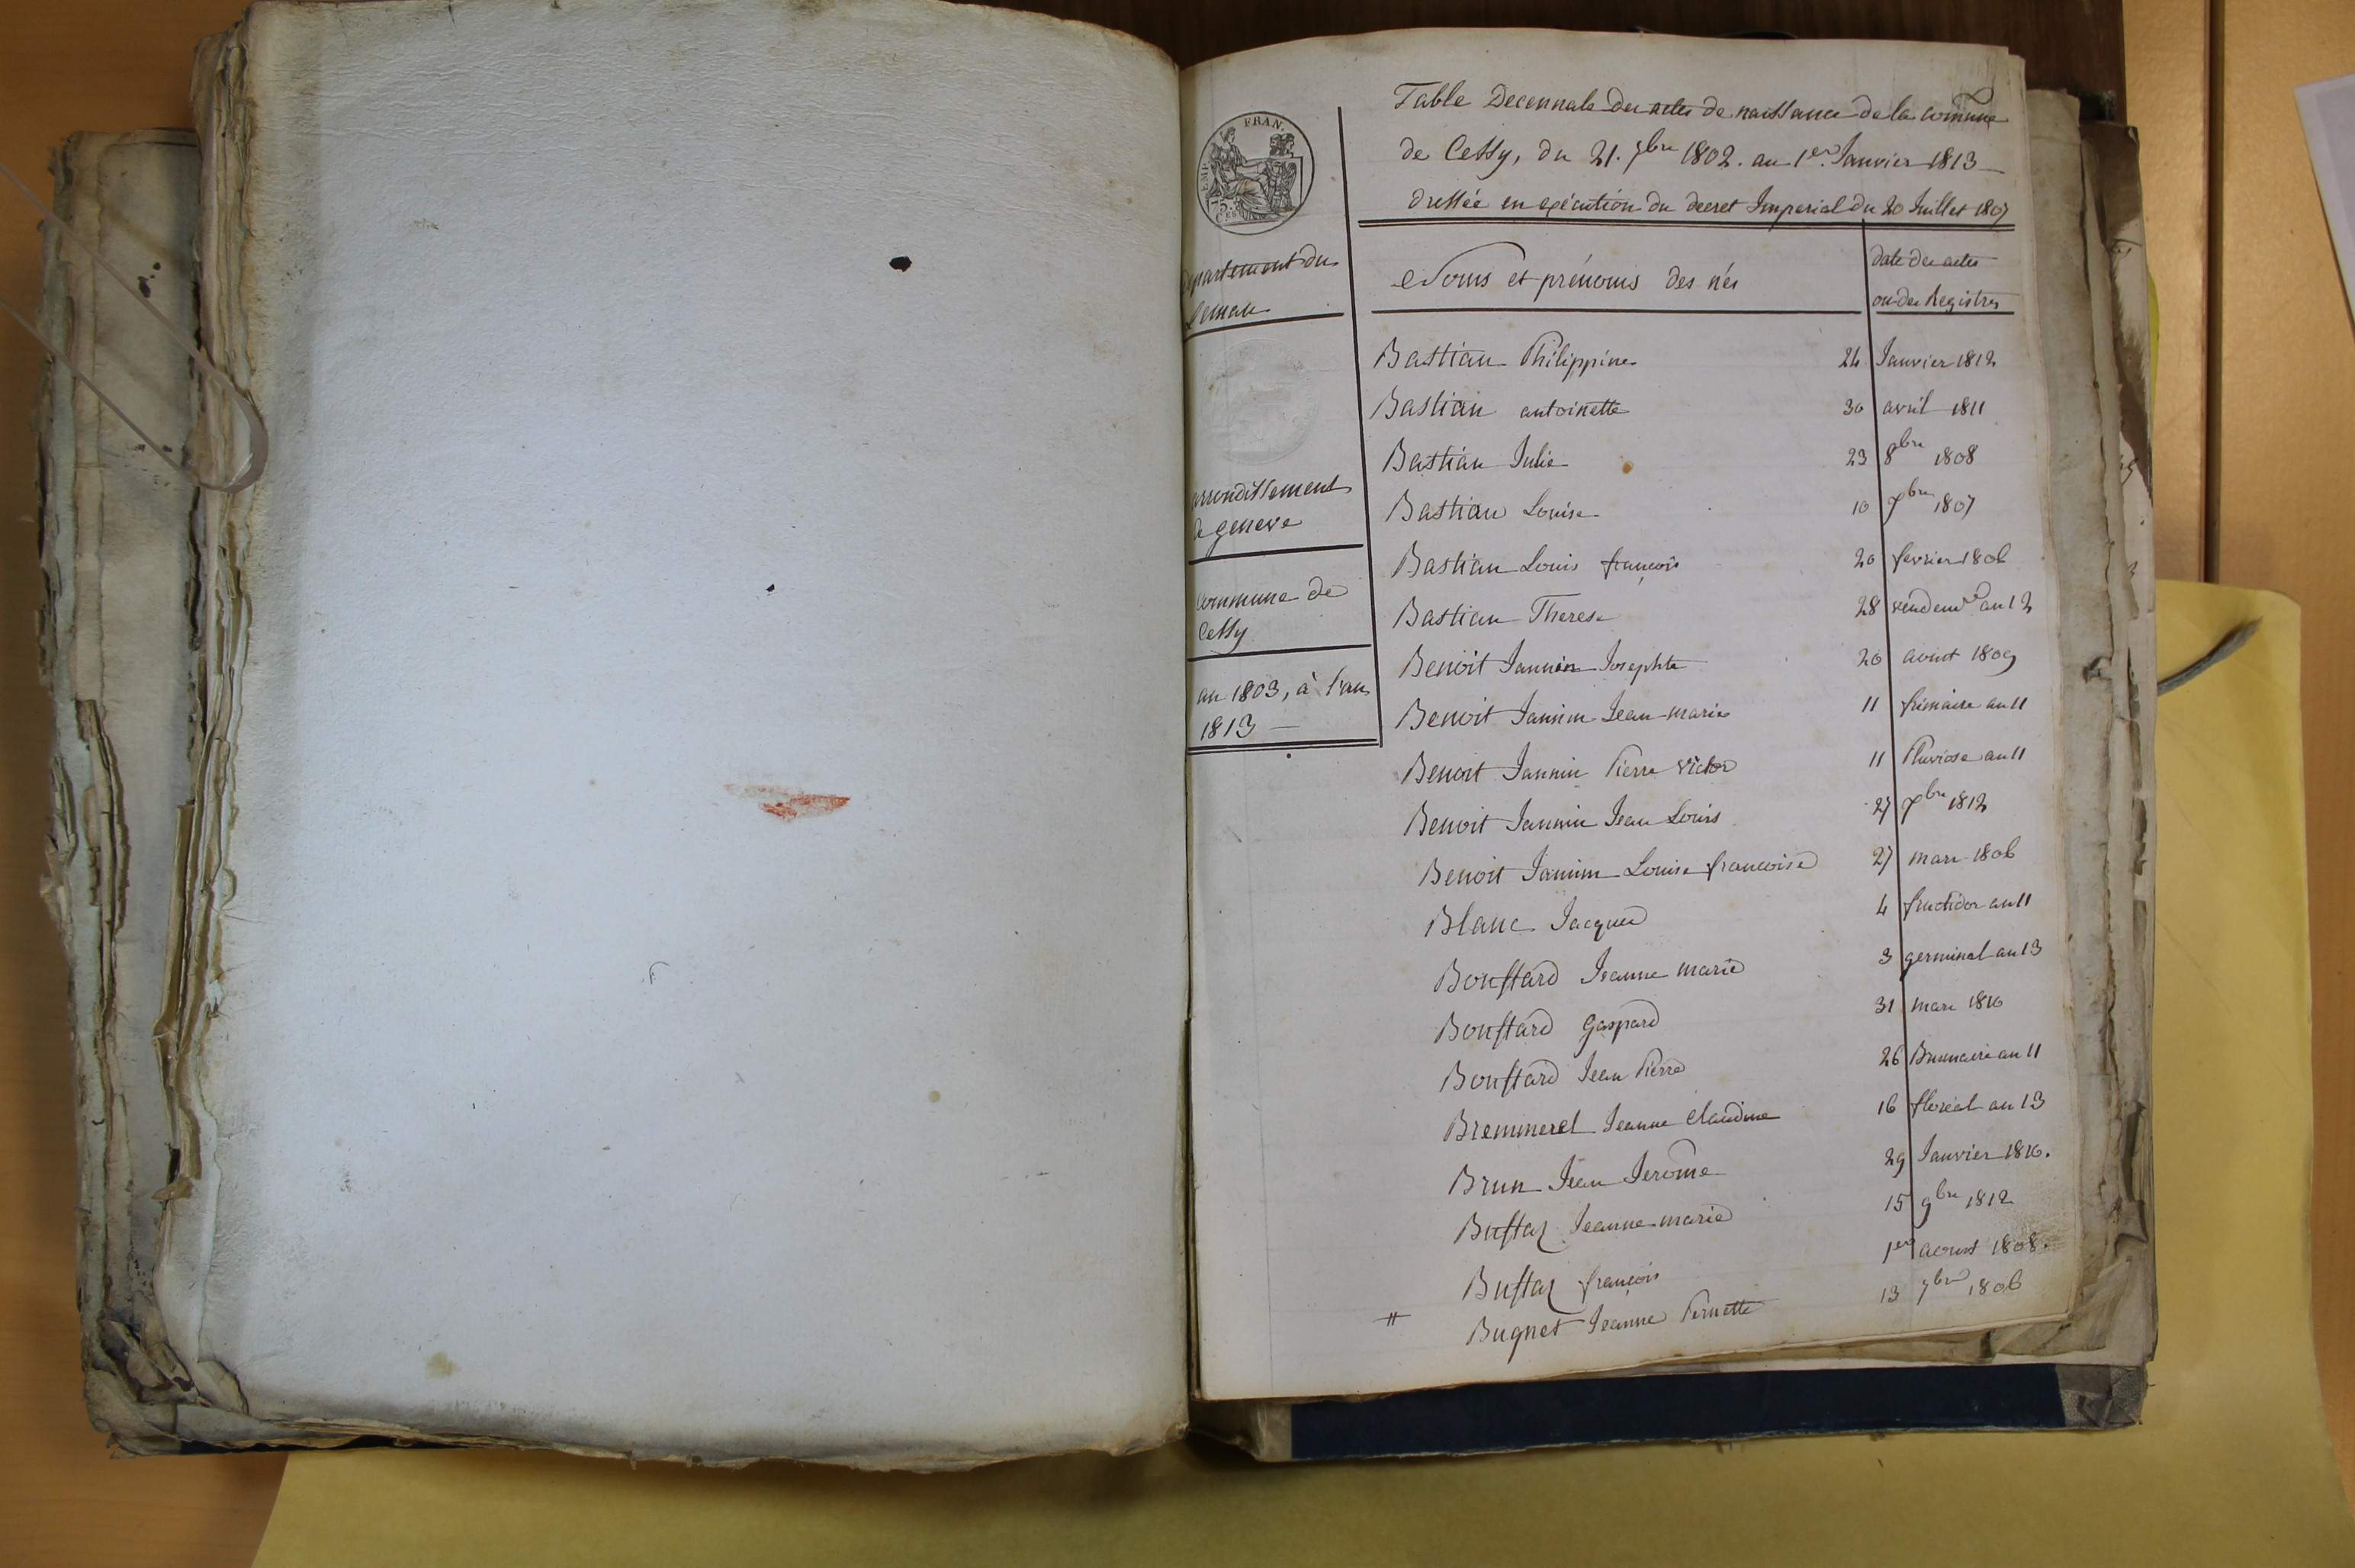 Table Decennale des actes de naissance de la commune
de Cessy, du 21. 7bre 1802. au 1er. Janvier 1813
dressée en exécution du decret Imperial du 20 Juillet 1807
FRAN.
EMP.
75.
CEN
departement du
Leman
arrondissement
de geneve
commune de
Cessy
an 1803, à l'an
1813
Noms et prénoms des nés
date des actes
ou des Registres
Bastian Philippine 24 Janvier 1812
Bastian antoinette 30 avril 1811
Bastian Julie 23 8bre 1808
Bastian Louise 10 7bre 1807
Bastian Louis françois 20 fevrier 1806
Bastian Therese 28 vendemre an 12
Benoit Jannin Josephte 20 aoust 1809
Benoit Jannin Jean marie 11 frimaire an 11
Benoit Jannin Pierre victor 11 Pluviose an 11
Benoit Jannin Jean Louis 27 7bre 1812
Benoit Jannin Louise francoise 27 mars 1806
Blanc Jacques 4 fructidor an 11
Boussard Jeanne marie 3 germinal an 13
Boussard gaspard 31 mars 1810
Boussard Jean Pierre 26 Brumaire an 11
Bremmerel Jeanne claudine 16 floréal an 13
Brun Jean Jerome 29 Janvier 1810.
Bussaz Jeanne marie 15 9bre 1812
Bussaz françois 1er aoust 1808.
Bugnet Jeanne Pernette 13 7bre 1806